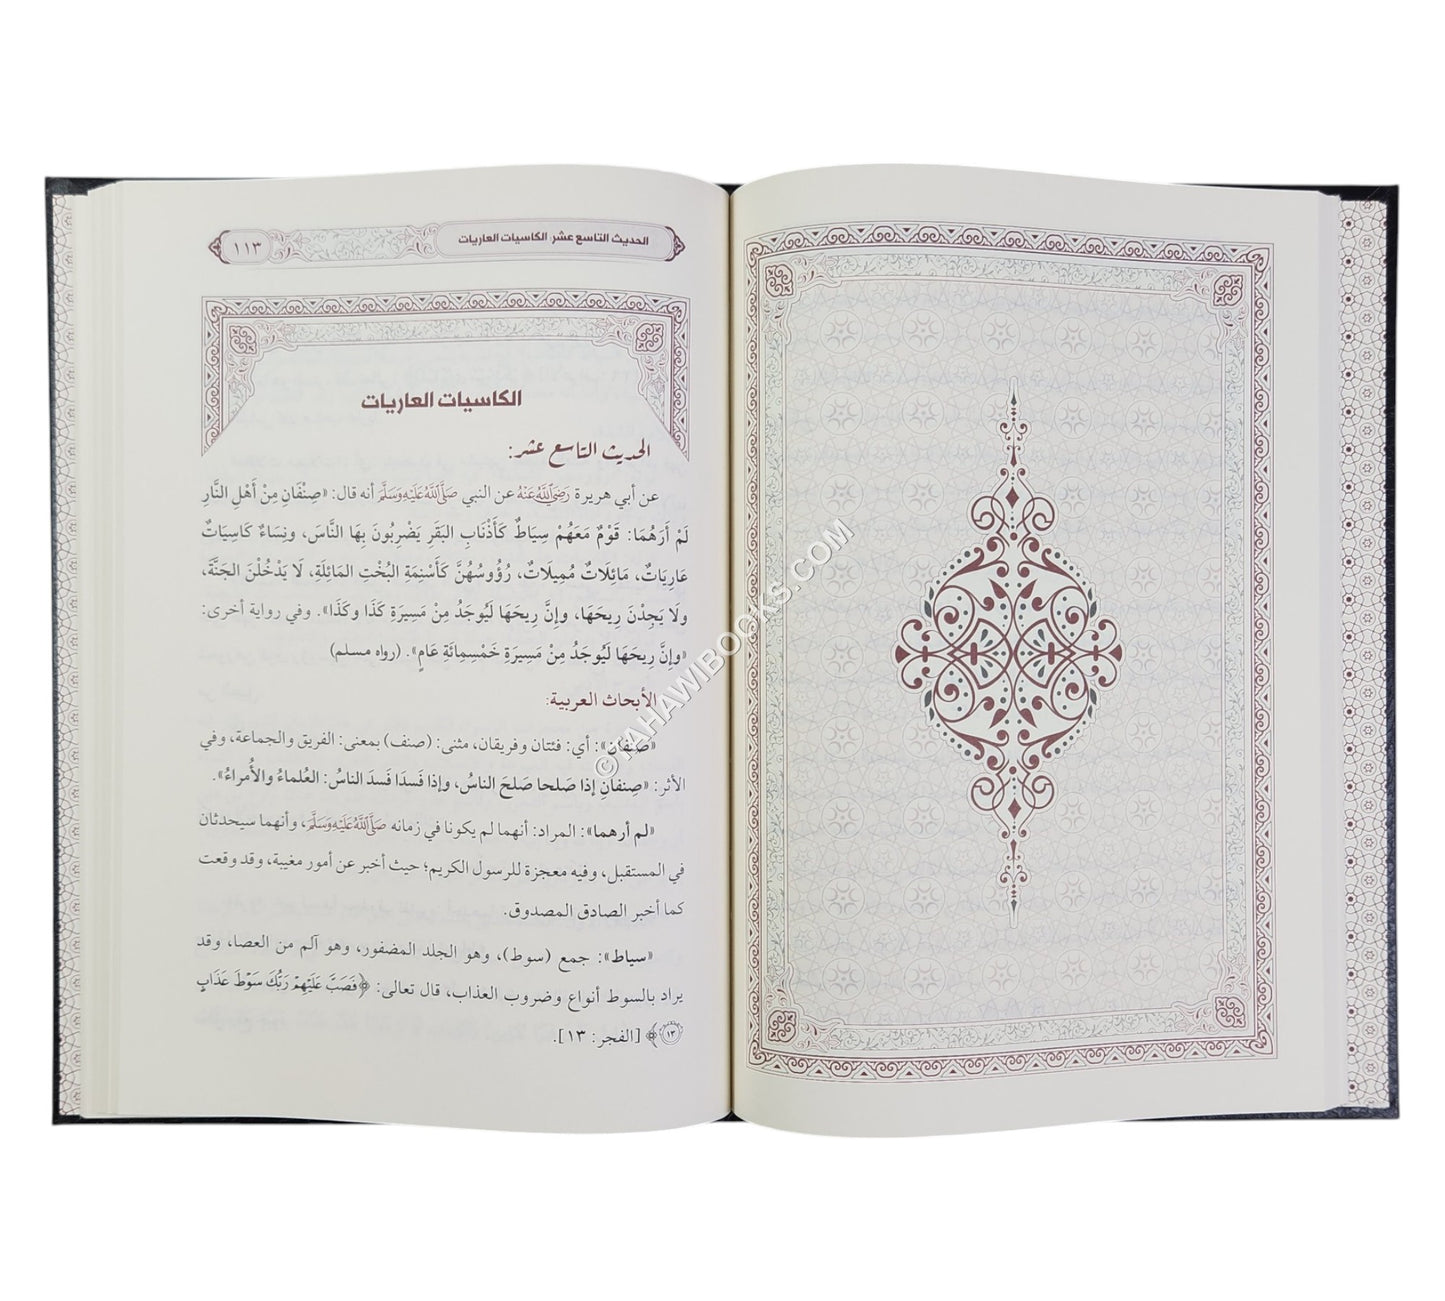 الحديث التاسع عشر: الكاسيات العاريات
١١٣
الكاسيات العاريات
الحديث التاسع عشر:
عن أبي هريرة رَضِيَ اللَّهُ عَنْهُ عن النبي صَلَّى اللَّهُ عَلَيْهِ وَسَلَّمَ أنه قال: «صِنْفَانِ مِنْ أَهْلِ النَّارِ
لَمْ أَرَهُمَا: قَوْمٌ مَعَهُمْ سِيَاطٌ كَأَذْنَابِ البَقَرِ يَضْرِبُونَ بِهَا النَّاسَ، ونِسَاءٌ كَاسِيَاتٌ
عَارِيَاتٌ، مَائِلَاتٌ مُمِيلَاتٌ، رُؤُوسُهُنَّ كَأَسْنِمَةِ البُخْتِ المَائِلَةِ، لَا يَدْخُلْنَ الجَنَّةَ،
ولَا يَجِدْنَ رِيحَهَا، وإِنَّ رِيحَهَا لَيُوجَدُ مِنْ مَسِيَرَةِ كَذَا وكَذَا». وفي رواية أخرى:
«وإِنَّ رِيحَهَا لَيُوجَدُ مِنْ مَسِيَرَةِ خَمْسِمِائَةِ عَامٍ». (رواه مسلم)
الأبحاث العربية:
«صنفان»: أي: فئتان وفريقان، مثنى: (صنف) بمعنى: الفريق والجماعة، وفي
الأثر: «صِنفَانِ إذا صَلحا صلحَ الناسُ، وإذا فَسدَا فَسدَ الناسُ: العُلماءُ والأُمراءُ».
«لم أرهما»: المراد: أنهما لم يكونا في زمانه صَلَّى اللَّهُ عَلَيْهِ وَسَلَّمَ، وأنهما سيحدثان
في المستقبل، وفيه معجزة للرسول الكريم؛ حيث أخبر عن أمور مغيبة، وقد وقعت
كما أخبر الصادق المصدوق.
«سياط»: جمع (سوط)، وهو الجلد المضفور، وهو آلم من العصا، وقد
يراد بالسوط أنواع وضروب العذاب، قال تعالى: ﴿فَصَبَّ عَلَيْهِمْ رَبُّكَ سَوْطَ عَذَابٍ
١٣﴾ [الفجر: ١٣].
©TAHAWIBOOKS.COM